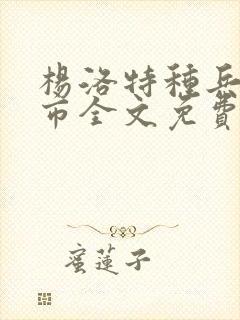 楊洛特種兵
市全文免費
蜜蓮子